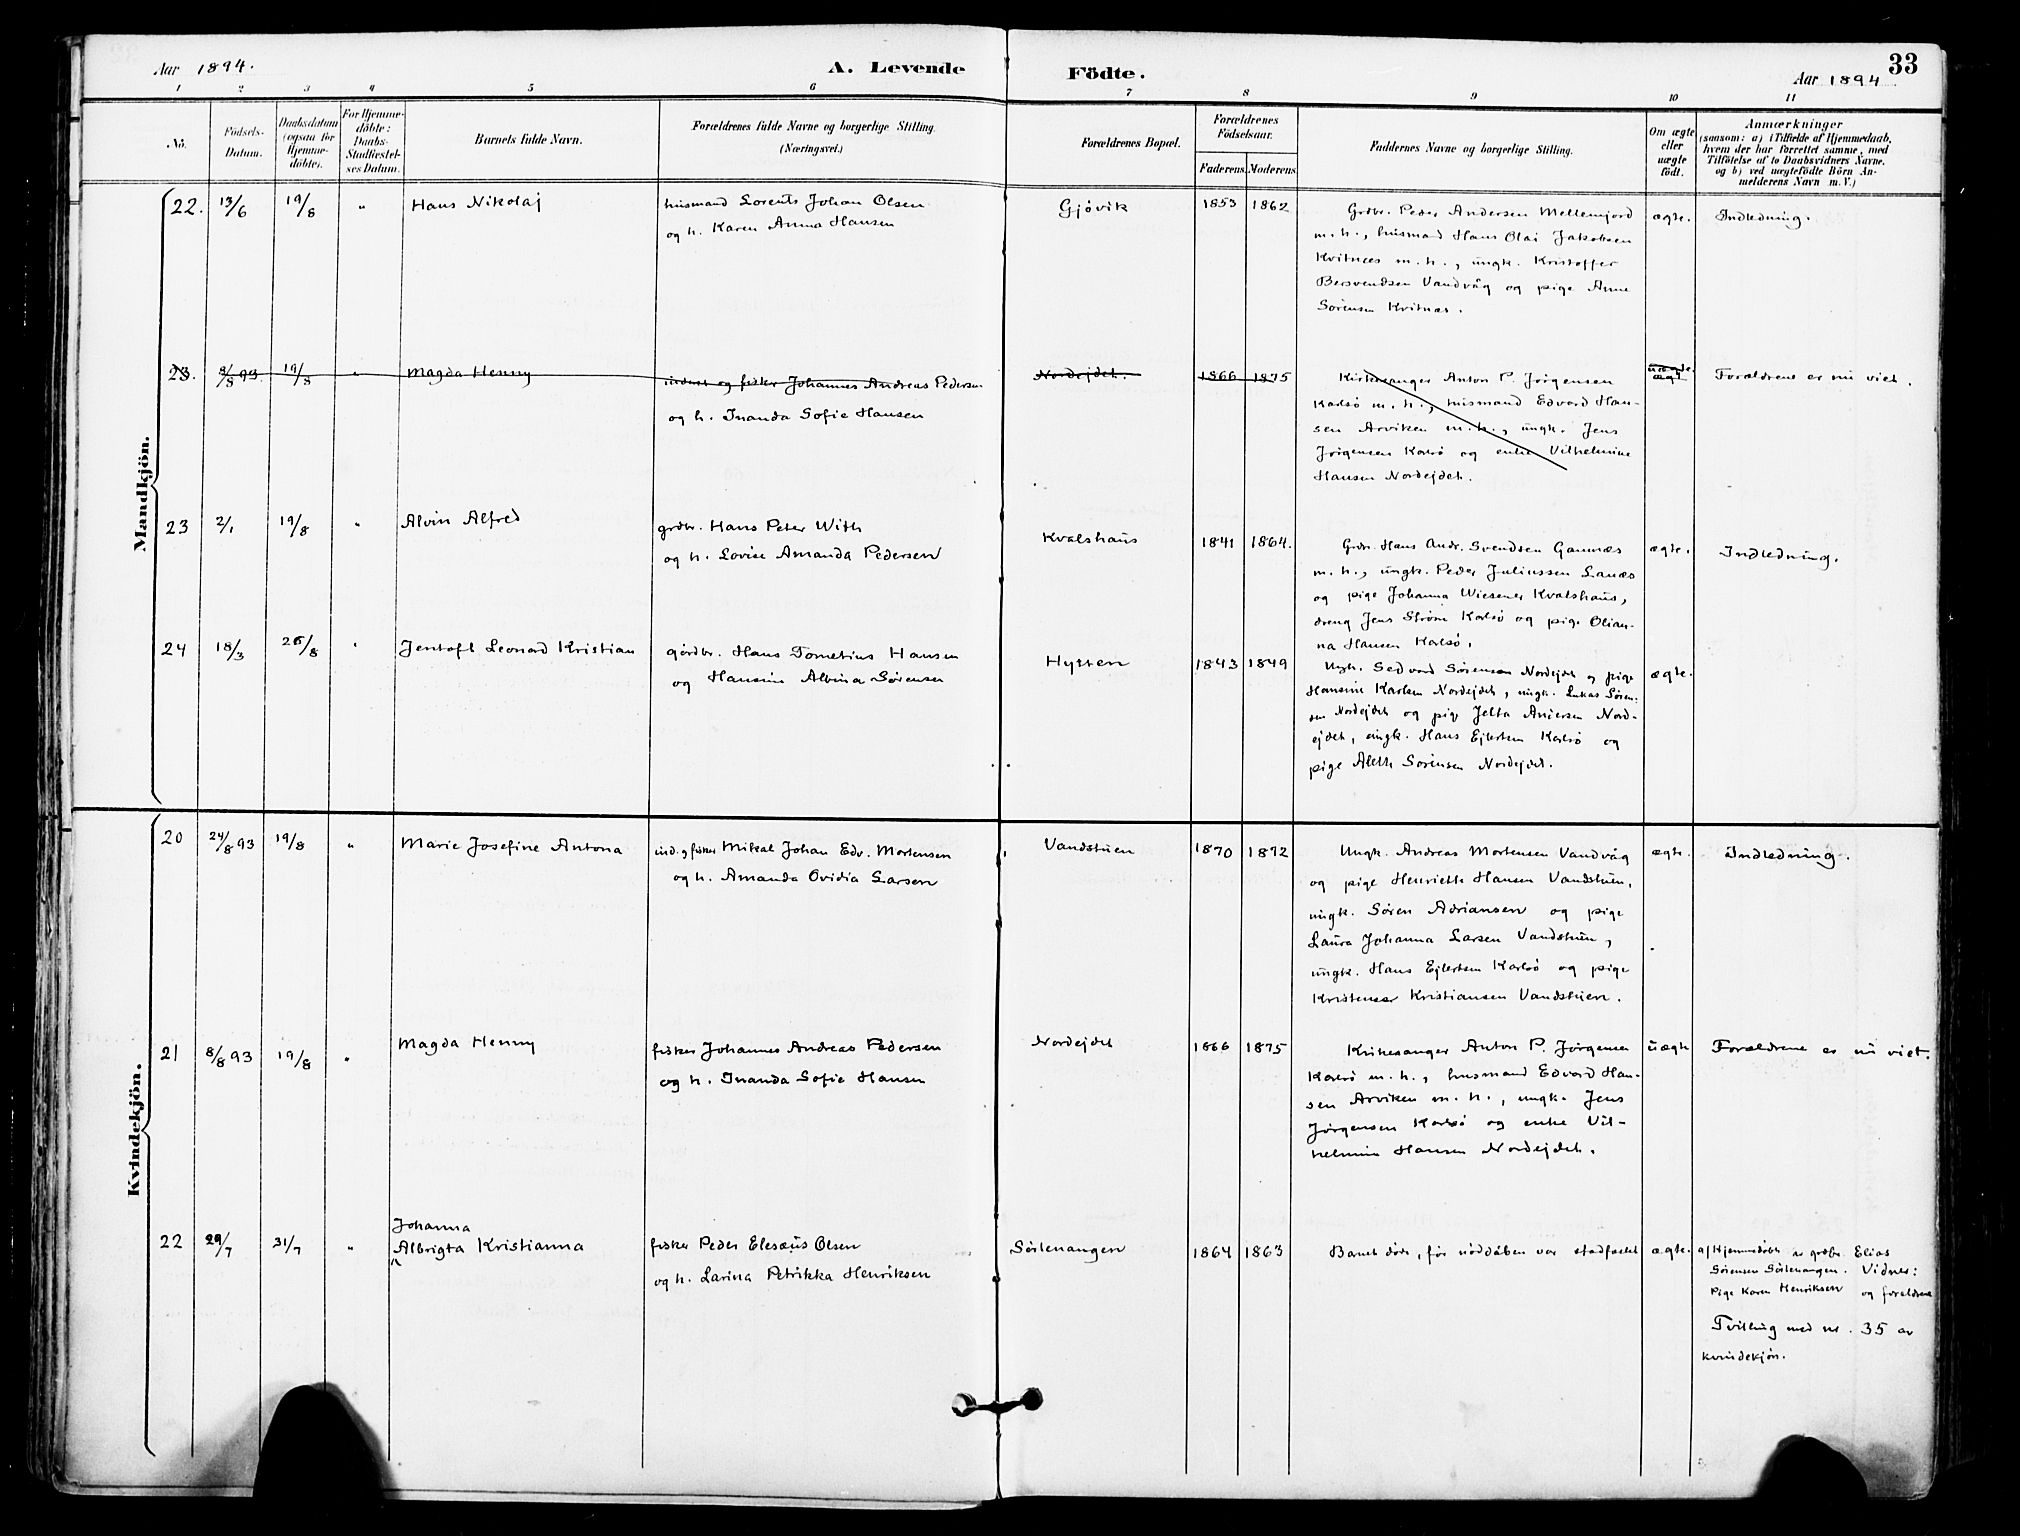 Aar 1894.
A. Levende
Födte.
Aar 1894
33
1 2 3 4 5 6 7 8 9 10 11
No.
Födsels-
Datum.
Daabsdatum
(ogsaa for
Hjemme-
döbte).
For Hjemme-
döbte:
Daabs-
Stadfæstel-
ses Datum.
Barnets fulde Navn.
Forældrenes fulde Navne og borgerlige Stilling.
(Næringsvei.)
Forældrenes Bopæl.
Forældrenes
Födselsaar.
Faderens. Moderens.
Faddernes Navne og borgerlige Stilling.
Om ægte
eller
uægte
födt.
Anmærkninger
(saasom: a) i Tilfælde af Hjemmedaab,
hvem der har forrettet samme, med
Tilföielse af to Daabsvidners Navne,
og b) ved uægtefödte Börn An-
melderens Navn m. V.)
Mandkjön.
22. 13/6 19/8 " Hans Nikolaj
husmand Lorents Johan Olsen
og h. Karen Anna Hansen
Gjövik 1853 1862
Grdbr. Peder Andersen Mellemjord
m. h., husmand Hans Olai Jakobsen
Kvitnæs m. h., ungk. Kristoffer
Bersvendsen Vandvåg og pige Anne
Sörensen Kvitnæs.
ægte. Indledning.
23. 8/8 93. 19/8 " Magda Henny
inderst og fisker Johannes Andreas Pedersen
og h. Inanda Sofie Hansen
Nordejdet. 1866 1875
Kirkesanger Anton P. Jörgensen
Karlsö m. h., husmand Edvard Han-
sen Arviken m. h., ungk. Jens
Jörgensen Karlsö og enke Vilhelmine
Hansen Nordejdet.
uægte.
ægt
Forældrene er nu viet.
23 2/1 19/8 " Alvin Alfred
grdbr. Hans Peter With
og h. Lovise Amanda Pedersen
Kvalshaus 1841 1864.
Grdr. Hans Andr. Svendsen Gamnæs
m. h., ungk. Peder Juliussen Lanæs
og pige Johanna Wiesener Kvalshaus,
dreng Jens Ström Karlsö og pige Olian-
na Hansen Karlsö.
ægte. Indledning.
24 18/3 26/8 " Jentoft Leonard Kristian
gårdbr. Hans Tometius Hansen
og Hansine Alvina Sörensen
Hytten 1843 1849
Ungk. Sedvard Sörensen Nordejdet og pige
Hansine Karlsen Nordejdet, ungk. Lukas Sören-
sen Nordejdet og pige Jetta Andersen Nord-
ejdet, ungk. Hans Ejlertsen Karlsö og
pige Aleth Sörensen Nordejdet.
ægte.
Kvindekjön.
20 24/8 93 19/8 " Marie Josefine Antona
ind. og fisker Mikal Johan Edv. Mortensen
og h. Amanda Ovidia Larsen
Vandstuen 1870 1872
Ungk. Andreas Mortensen Vandvåg
og pige Henriette Hansen Vandstuen,
ungk. Sören Adriansen og pige
Laura Johanna Larsen Vandstuen,
ungk. Hans Ejlertsen Karlsö og pige
Kristense Kristiansen Vandstuen.
ægte. Indledning.
21 8/8 93 19/8 " Magda Henny
fisker Johannes Andreas Pedersen
og h. Inanda Sofie Hansen
Nordejdet 1866 1875
Kirkesanger Anton P. Jörgensen
Karlsö m. h., husmand Edvard Han-
sen Arviken m. h., ungk. Jens
Jörgensen Karlsö og enke Vil-
helmine Hansen Nordejdet.
uægte Forældrene er nu viet.
22 29/7 31/7 " Johanna
Albrigta Kristianna
fisker Peder Elesæus Olsen
og h. Larina Petrikka Henriksen
Sörlenangen 1864 1863
Barnet döde, för nöddåben var stadfæstet
ægte.
a/ Hjemmedöbt av grdbr. Elias
Sörensen Sörlenangen. Vidner:
Pige Karen Henriksen og forældrene
Tvilling med nr. 35 av
kvindekjön.